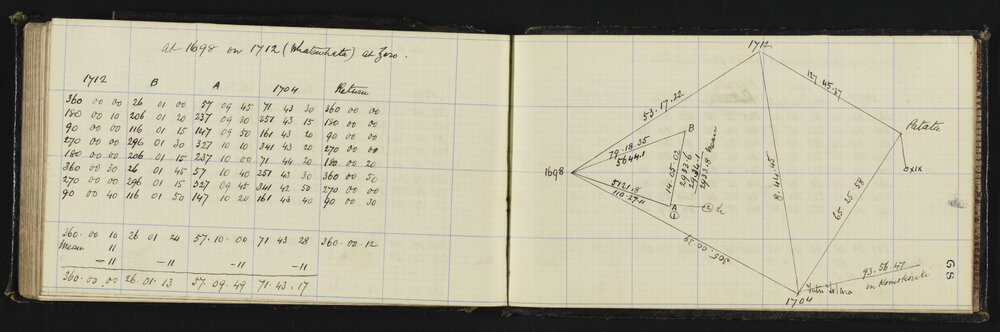 at 1698 on 1712 (Whatawhata) at Zero.
1712 B A 1704 Return
360 00 00 26 01 00 57 09 45 71 43 30 360 00 00
180 00 10 206 01 20 237 09 30 251 43 15 180 00 00
90 00 00 116 01 15 147 09 50 161 43 20 90 00 00
270 00 00 296 01 30 327 10 10 341 43 20 270 00 00
180 00 00 206 01 15 237 10 00 71 44 20 180 00 20
360 00 30 26 01 45 57 10 40 251 43 30 360 00 50
270 00 00 296 01 15 327 09 45 341 42 50 270 00 00
90 00 40 116 01 50 147 10 20 161 43 40 90 00 30
360 00 10 26 01 24 57.10.00 71 43 28 360.00.12
Mean 11
-11 -11 -11 -11
360.00.00 26.01.13 57.09.49 71.43.17
1712
127.45.27
53.17.22
Retata
B
79.18.35
5644.1
1698
14.05.02
2933.6
2934.1
2933.8 mean
8.44.45
65.25.58
XIX
5121.8
110.27.11
A
305.00.39
93.56 47
on Komokorau
1704
68